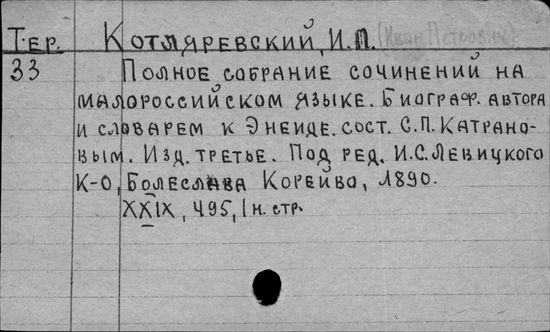 Т.ер. Котляревский, И.П. (Иван Петрович)
33 Полное собрание сочинений на
малороссийском языке. Биограф. автора
и словарем к Энеиде. сост. С.П. Катрано-
вым. Изд. третье. Под ред. И.С. Левицкого
К-о, Болеслава Корейво, 1890.
XXIX, 495, 1 н. стр.